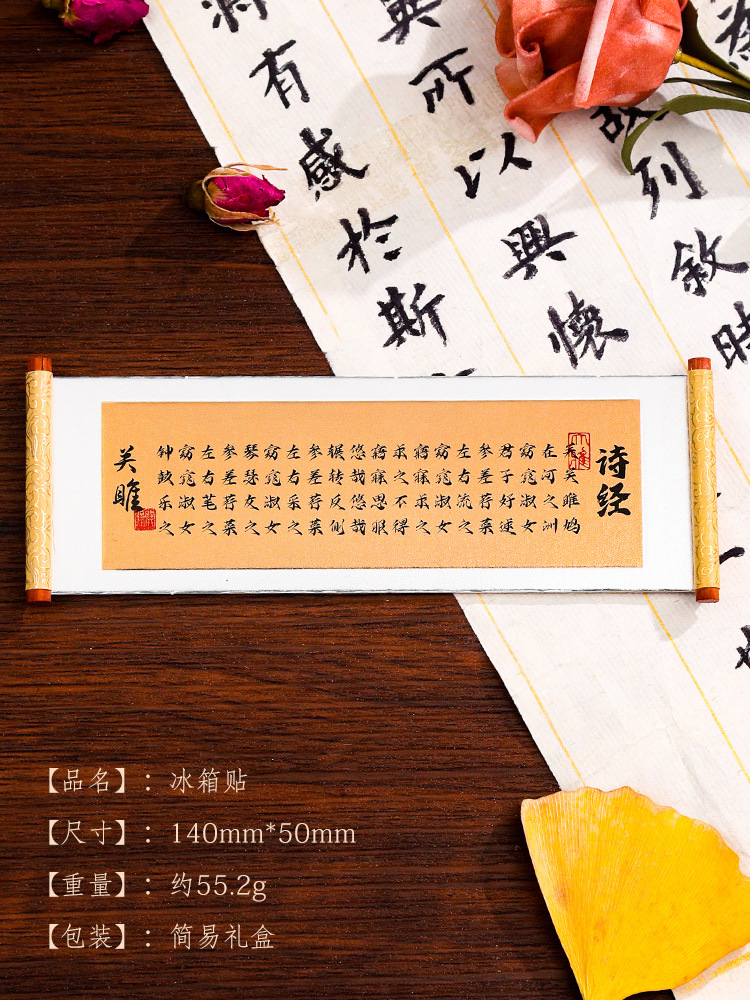 故列敘時
異所以興懷
有感於斯
诗经
关关雎鸠
在河之洲
窈窕淑女
君子好逑
参差荇菜
左右流之
窈窕淑女
寤寐求之
求之不得
寤寐思服
悠哉悠哉
辗转反侧
参差荇菜
左右采之
窈窕淑女
琴瑟友之
参差荇菜
左右芼之
窈窕淑女
钟鼓乐之
关雎
【品名】：冰箱贴
【尺寸】：140mm*50mm
【重量】：约55.2g
【包装】：简易礼盒